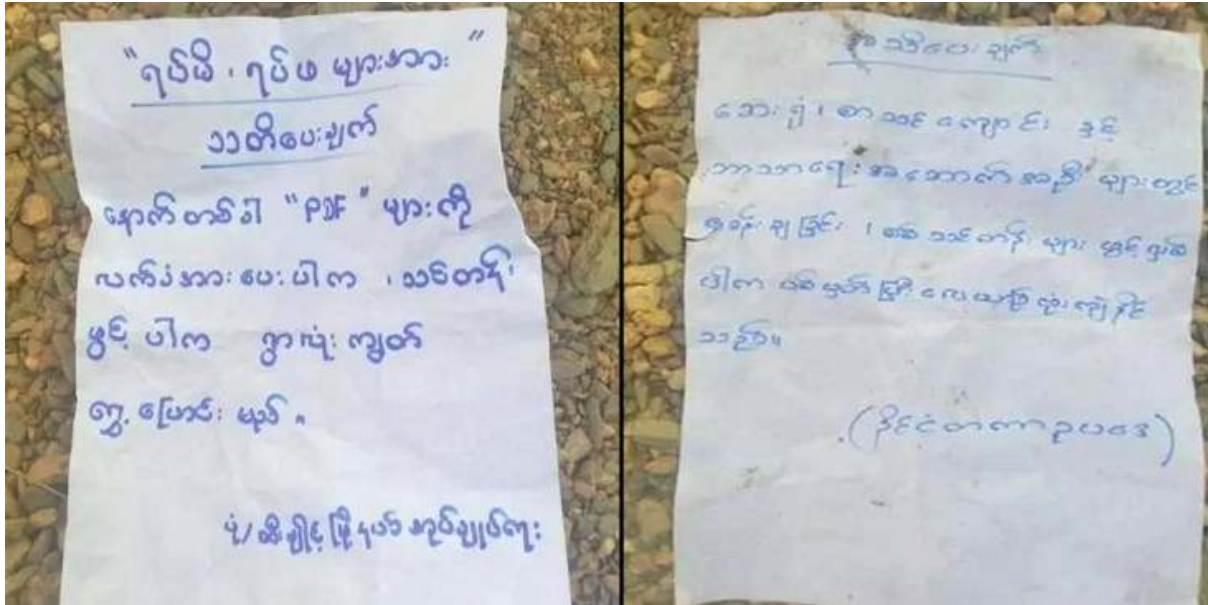 "ရပ်မိ၊ ရပ်ဖ များအား"
သတိပေးချက်
နောက်တစ်ခါ "PDF" များကို
လက်ခံအားပေးပါက ၊ သင်တန်း
ဖွင့်ပါက ရွာလုံးကျွတ်
ရွှေ့ပြောင်းမည်။
ပုံ/ဆီးချိုင့်မြို့နယ်အုပ်ချုပ်ရေး
သတိပေးချက်
ဆေးရုံ၊ စာသင်ကျောင်း နှင့်
ဘာသာရေးအဆောက်အဦး များတွင်
စခန်းချခြင်း ၊ စစ်သင်တန်း များ ဖွင့်
ပါက ပစ်မှတ်ပြု လေယာဉ် ဗုံးကြဲနိုင်
သည်။
(နိုင်ငံတကာဥပဒေ)